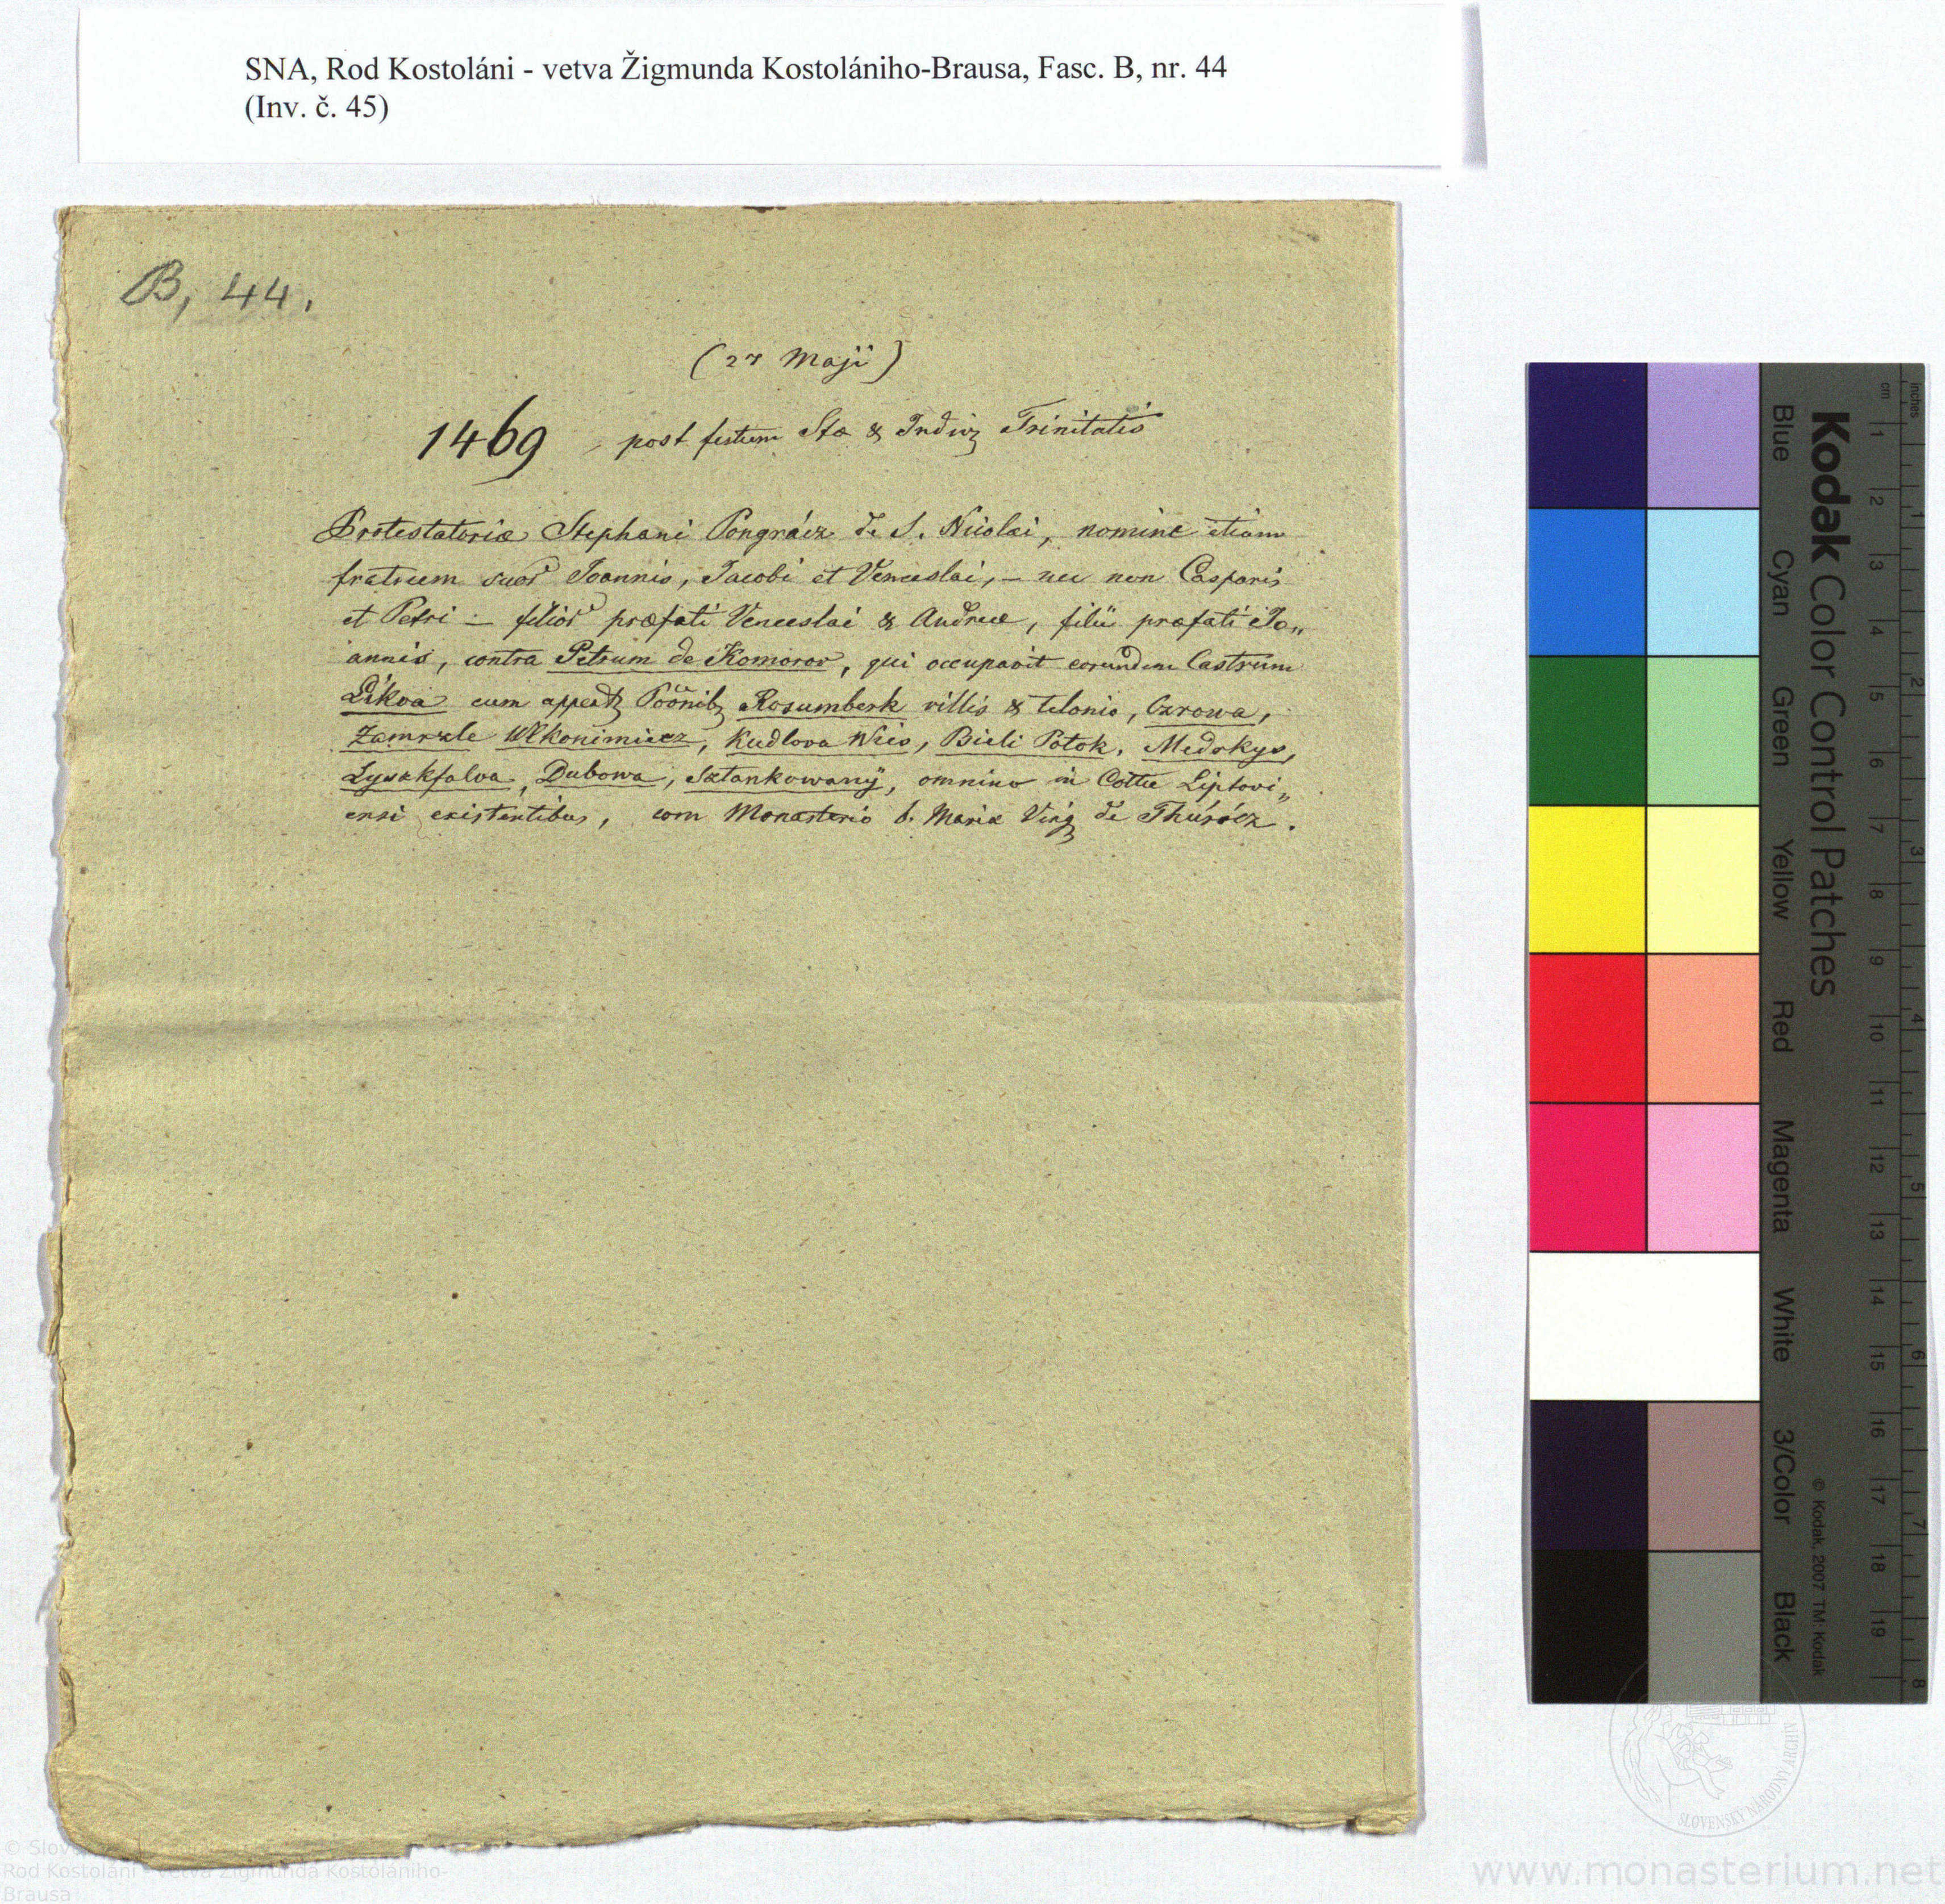 SNA, Rod Kostoláni - vetva Žigmunda Kostolániho-Brausa, Fasc. B, nr. 44
(Inv. č. 45)
B, 44.
(27 Maji)
1469 post festum Stæ & Indiv Trinitatis
Protestatoriæ Stephani Pongrácz de S. Nicolai, nomine etiam
fratrum suor Joannis, Jacobi et Venceslai, – nec non Casparis
et Petri – filior præfati Venceslai & Andreæ, filii præfati Jo„
annis, contra Petrum de Komorov, qui occupavit eorundem Castrum
Likva cum appert Poönib Rosumberk villis & telonio, Czrowa,
Zamrzle Wlkonimiecz, Kudlova Wcis, Bieli Potok, Medokys,
Lysakfalva, Dubowa, Sztankowanÿ, omnino in Cottu Liptovi„
ensi existentibus, com Monasterio b. Mariæ Virg de Thúrócz.
Kodak Color Control Patches
Blue Cyan Green Yellow Red Magenta White 3/Color Black
© Kodak, 2007 TM: Kodak
cm 1 2 3 4 5 6 7 8 9 10 11 12 13 14 15 16 17 18 19
inches 1 2 3 4 5 6 7 8
SLOVENSKÝ NÁRODNÝ ARCHÍV
Rod Kostoláni - vetva Žigmunda Kostolániho-
Brausa
www.monasterium.net